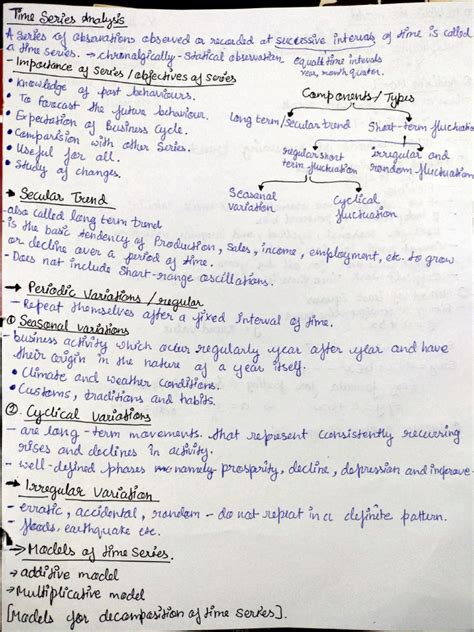 Time Series Analysis
A series of observations observed or recorded at successive intervals of time is called
a time series. → chronologically - Statical observation equal time intervals
Year, month quater.
- Importance of Series / objectives of series
• Knowledge of past behaviours.
• To forecast the future behaviour.
• Expectation of Business Cycle.
• Comparision with other Series.
• Useful for all.
• Study of changes.
Components / Types
Long term / Secular trend
Short-term fluctuation
regular short
term fluctuation
irregular and
random fluctuation
Seasonal
variation
Cyclical
fluctuation
→ Secular Trend
- also called long term trend
- is the basic tendency of Production, Sales, income, employment, etc. to grow
or decline over a period of time.
- Does not include short-range oscillations.
→ Periodic Variations / regular
- Repeat themselves after a fixed interval of time.
① Seasonal variations
- business activity which occur regularly year after year and have
their origin in the nature of a year itself.
• Climate and weather conditions.
• Customs, traditions and habits.
②. Cyclical Variations
- are long-term movements. that represent consistently recurring
rises and declines in activity.
- well-defined phases namely prosperity, decline, depression and improve-
→ Irregular Variation
- erratic, accidental, random - do not repeat in a definite pattern.
- floods, earthquake etc.
→ Models of time Series.
→ additive model
→ Multiplicative model
[Models for decomposition of time series].